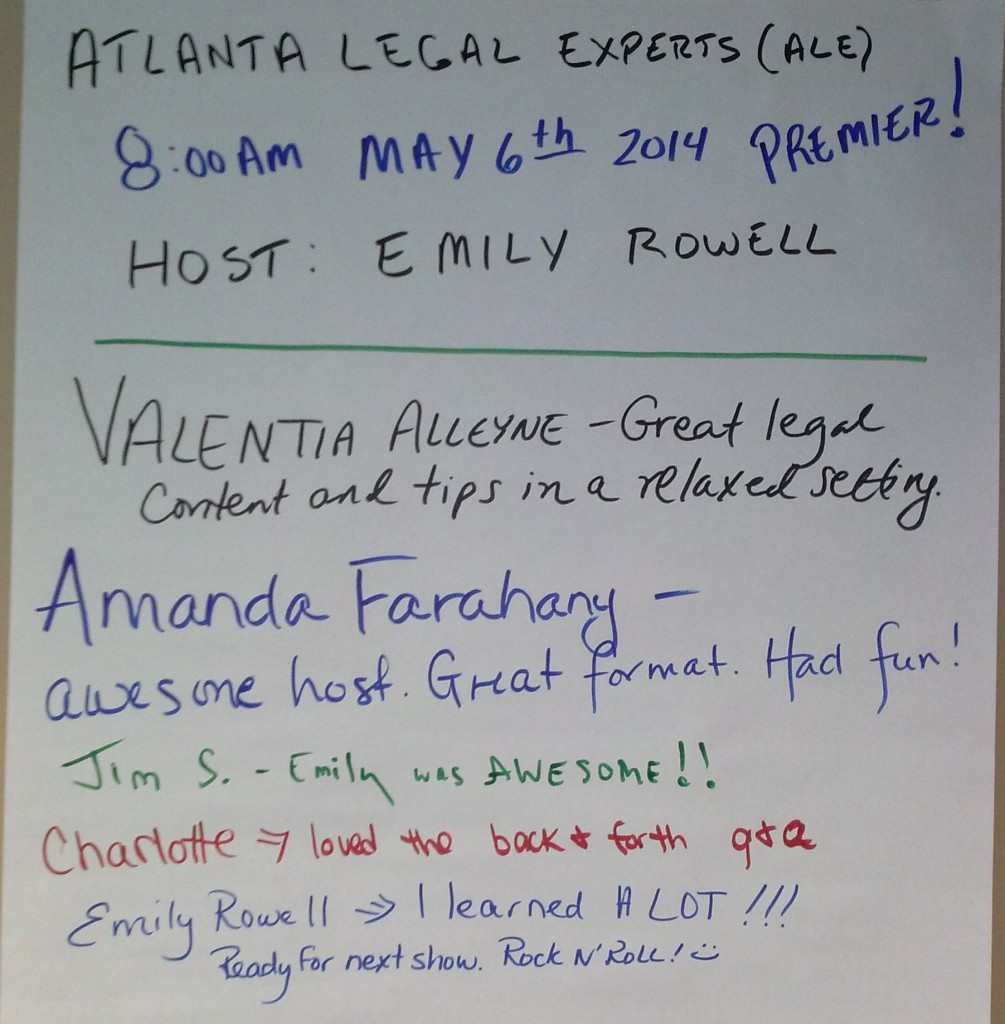 ATLANTA LEGAL EXPERTS (ALE)
8:00AM MAY 6th 2014 PREMIER!
HOST: EMILY ROWELL
VALENTIA ALLEYNE - Great legal
Content and tips in a relaxed setting.
Amanda Farahany -
awesome host. Great format. Had fun!
Jim S. - Emily was AWESOME!!
Charlotte → loved the back & forth q & a
Emily Rowell ⇒ I learned A LOT !!!
Ready for next show. Rock N' Roll! ☺